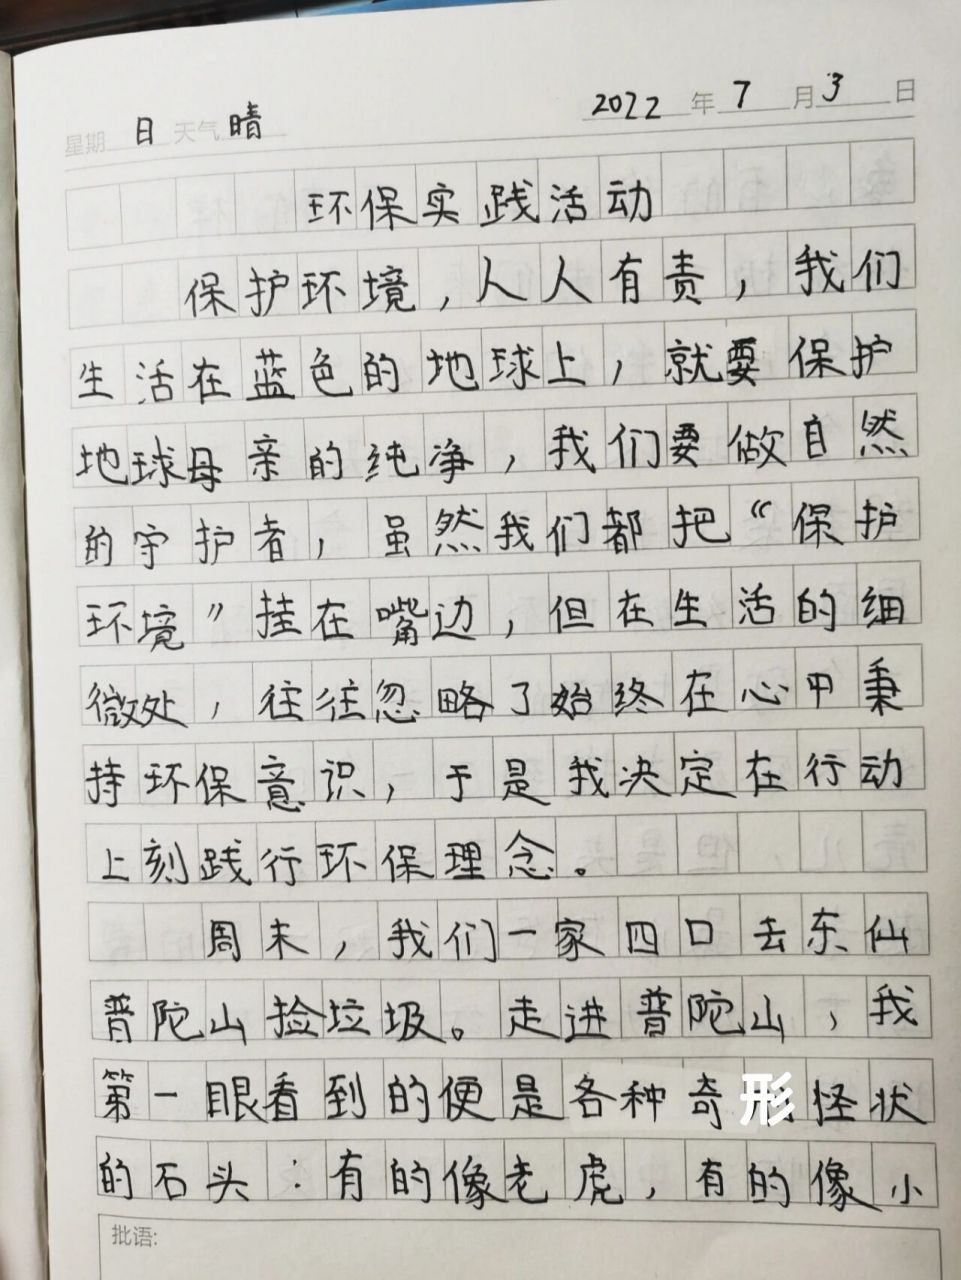 星期 日 天气 晴 2022 年 7 月 3 日
环保实践活动
保护环境,人人有责,我们
生活在蓝色的地球上,就要保护
地球母亲的纯净,我们要做自然
的守护者,虽然我们都把“保护
环境”挂在嘴边,但在生活的细
微处,往往忽略了始终在心中秉
持环保意识,于是我决定在行动
上刻践行环保理念。
周末,我们一家四口去东仙
普陀山捡垃圾。走进普陀山,我
第一眼看到的便是各种奇形怪状
的石头:有的像老虎,有的像小
批语: